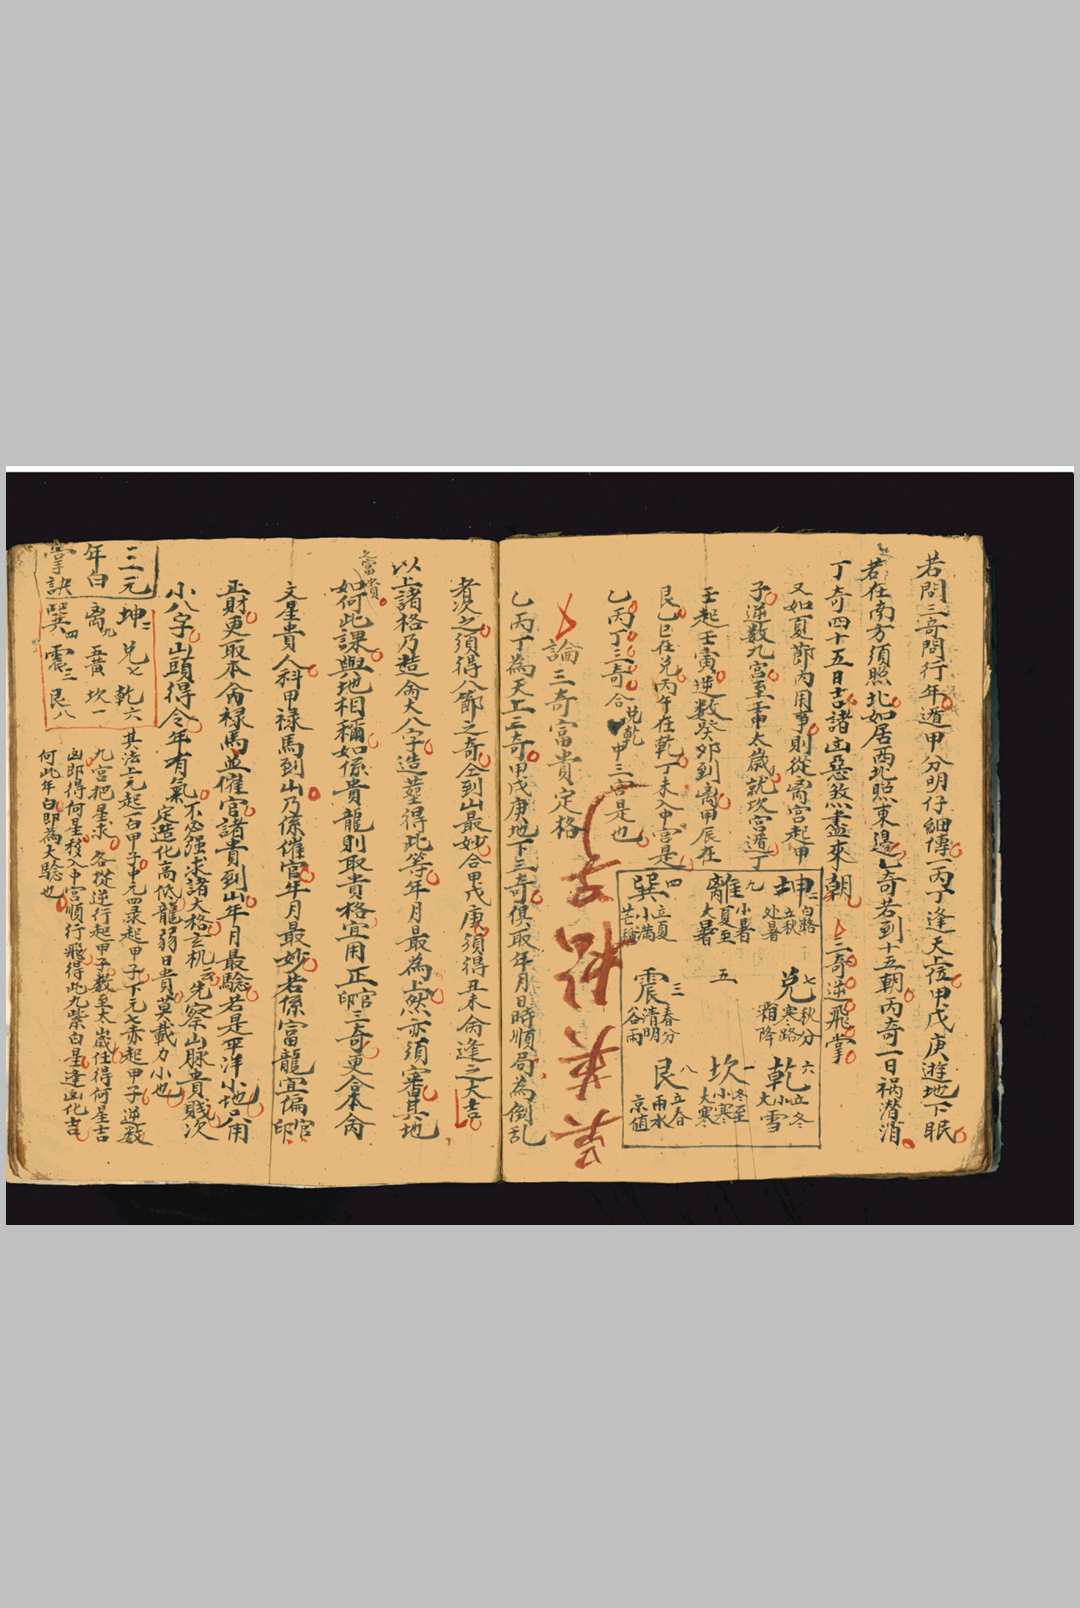 若問三奇問行年遁甲分明仔細傳一丙丁逢天上位甲戊庚遊地下眠
若在南方須照北如居西北照東邊乙奇若到十五朝丙奇一日祸潜消
丁奇四十五日吉諸凶惡煞盡來朝
三奇逆飛掌
又如夏節內用事則從离宮起甲
子逆数九宮至壬申太歲就坎宮遁丁
壬起壬寅逆数癸卯到离甲辰在
艮乙巳在兑丙午在乾丁未入中宮是
乙丙丁三奇合兑乾中三宮是也
坤二 白路 立秋 处暑
離九 小暑 夏至 大暑
巽四 立夏 小滿 芒種
兑七 秋分 寒路 霜降
五
震三 春分 清明 谷雨
乾六 立冬 小雪 大
坎一 冬至 小寒 大寒
艮八 立春 雨水 京值
論三奇富貴定格
乙丙丁為天上三奇甲戊庚地下三奇俱取年月日時順局為倒乱
者次之須得八節之奇仝到山最妙合甲戊庚須得丑未命逢之大吉
以上諸格乃造命大八字造塟得此等年月最為上然亦須審其地
富貴
如何此課與地相稱如係貴龍則取貴格宜用正官印三奇更合本命
文星貴人科甲禄馬到山乃係催官年月最妙若係富龍宜偏官印
正財更取本命禄馬並催官諸貴到山年月最驗若是平洋小地只用
小八字山頭得令年有氣不必强求諸大格玄机云先察山脉貴賤次
定造化高低龍弱日貴莫載力小也
三元年白掌訣
坤二 兑七 乾六
离九 五黃 坎一
巽四 震三 艮八
其法上元起一白甲子中元四录起甲子下元七赤起甲子逆数
九宮把星求各從逆行起甲子数至太歲任得何星吉
凶即得何星移入中宮順行飛得此九紫白星逢凶化吉
何此年白即為大驗也